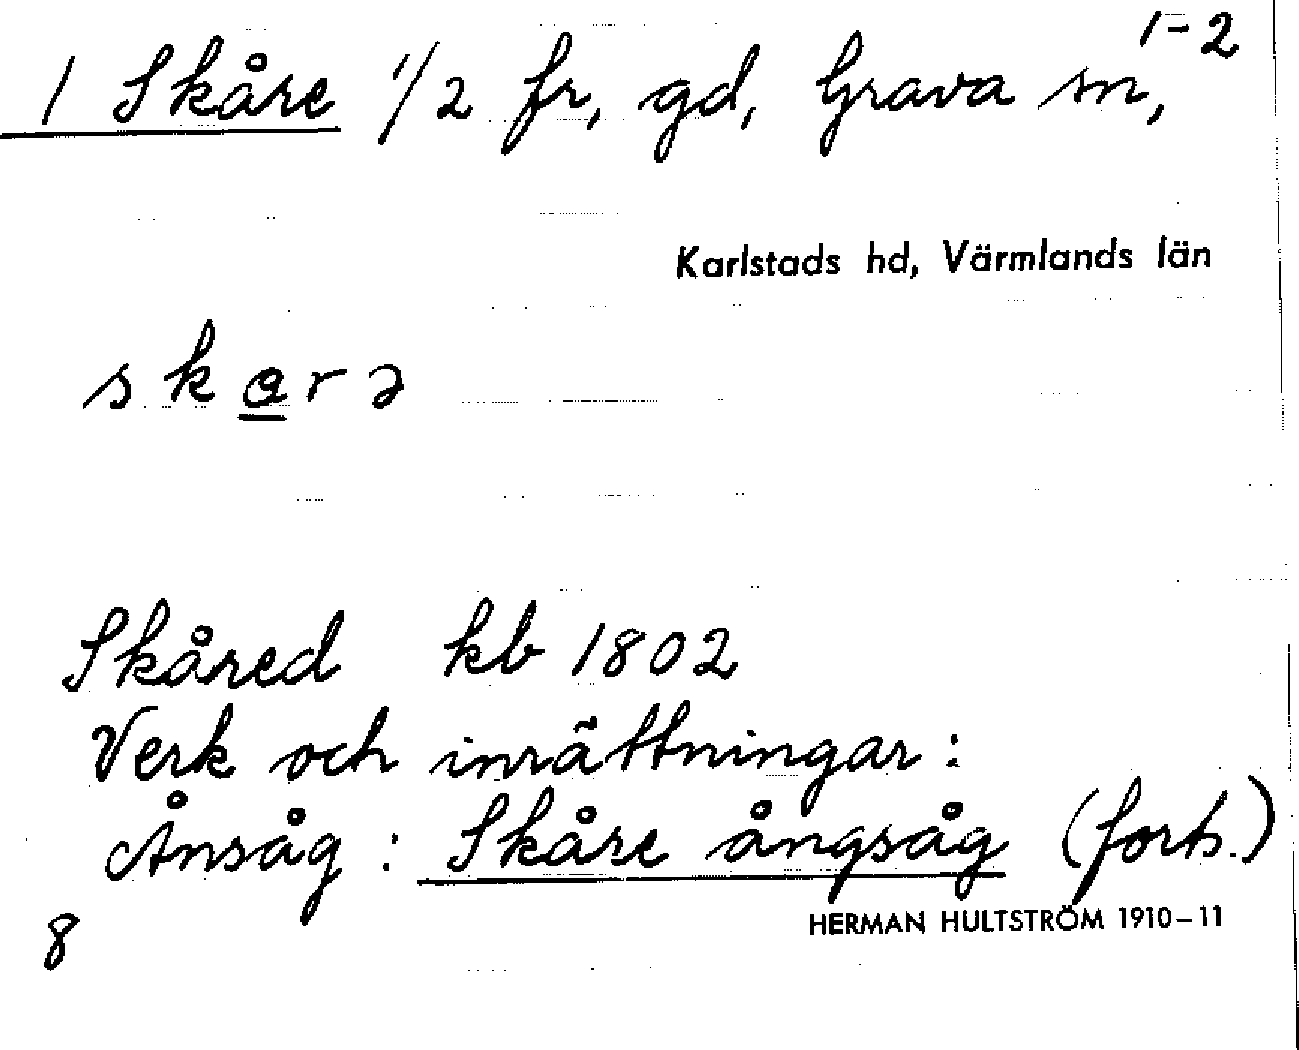 1-2
1 Skåre 1/2 fr, gd, Grava sn,
Karlstads hd, Värmlands län
skarə
Skåred kb 1802
Verk och inrättningar:
Ånsåg: Skåre ångsåg (forts.)
8
HERMAN HULTSTRÖM 1910-11